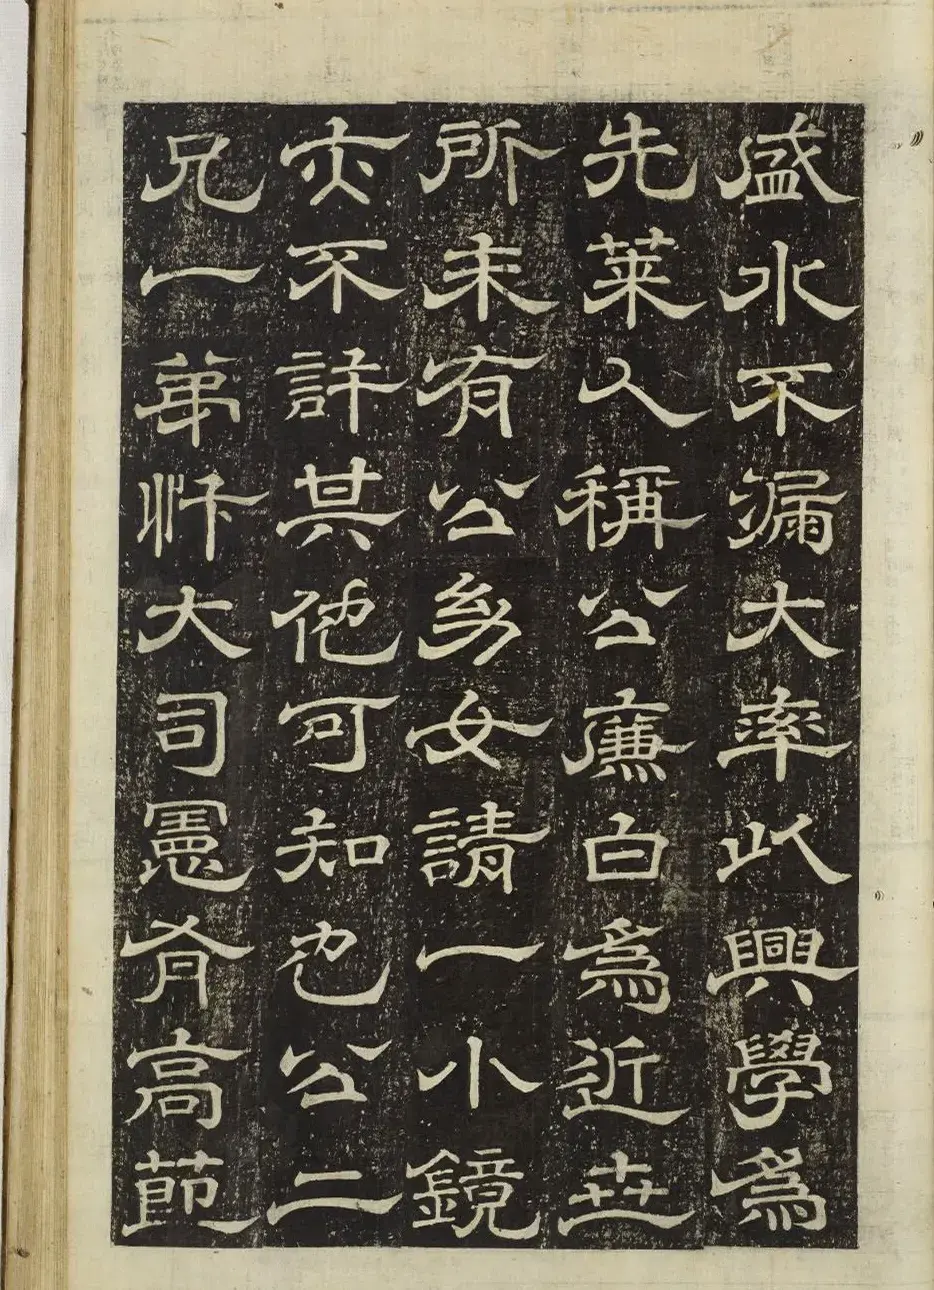 盛水不漏大率以興學爲
先莱人稱公廉白爲近世
所未有公幼女請一小鏡
亦不許其他可知也公二
兄一弟忭大司憲有高節